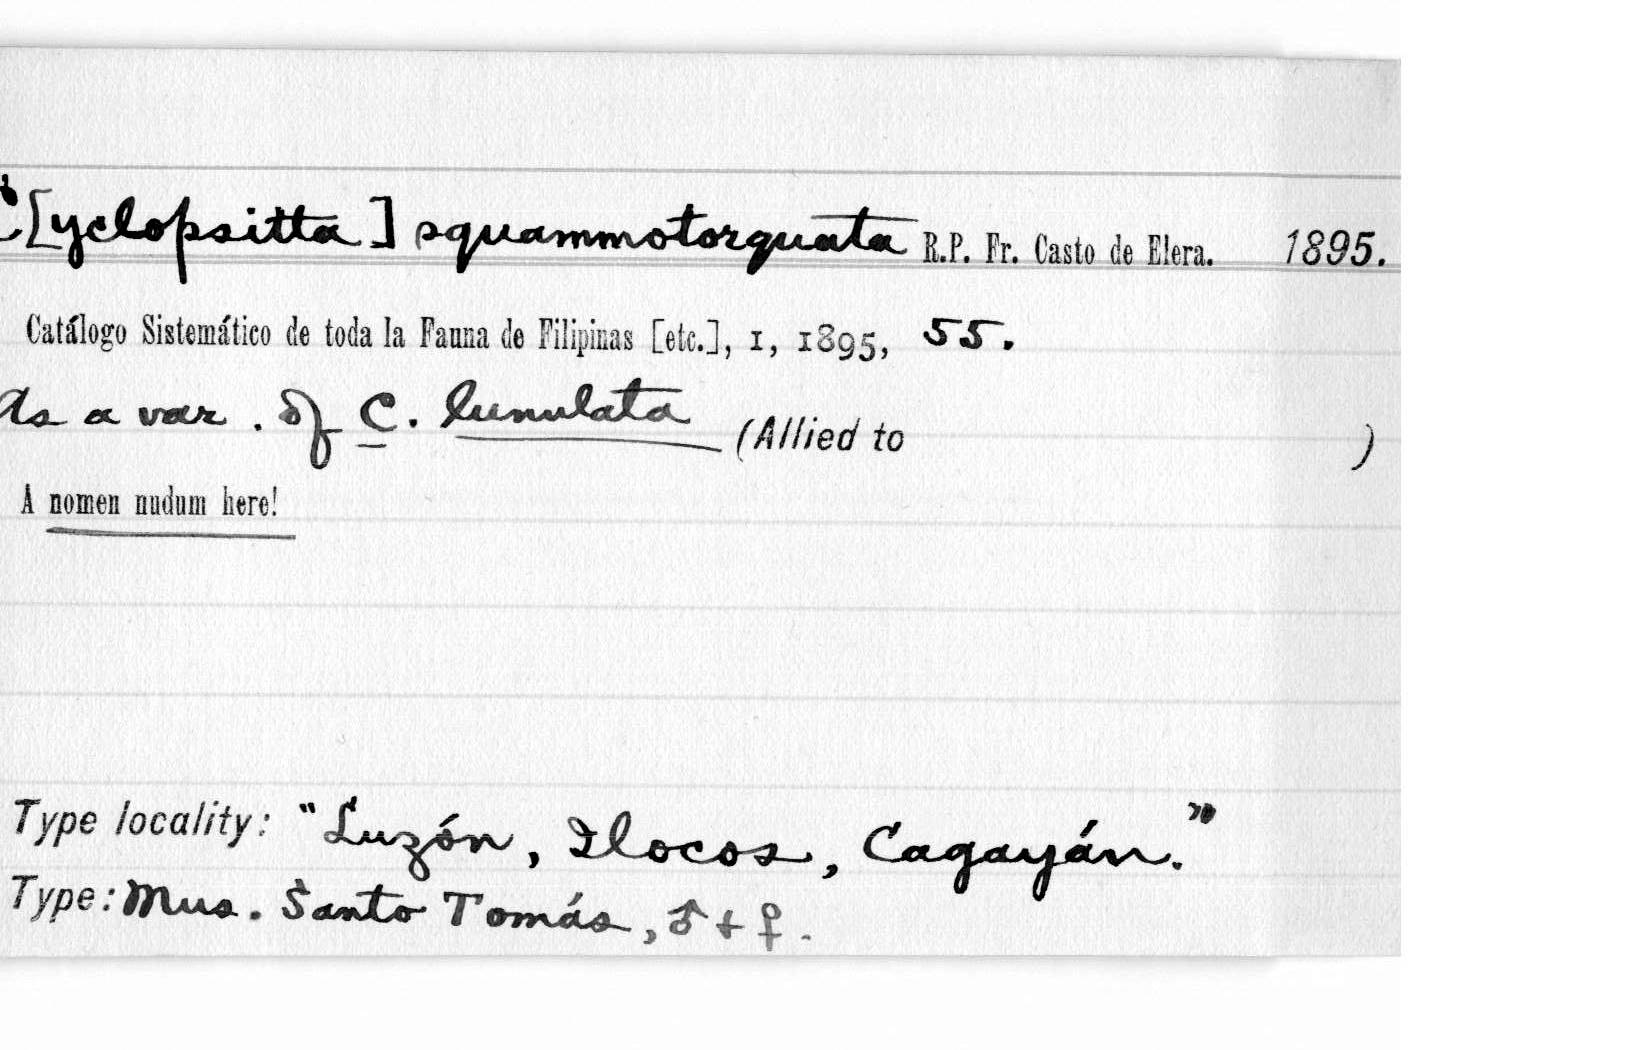 C[yclopsitta] squammotorquata R.P. Fr. Casto de Elera. 1895.
Catálogo Sistemático de toda la Fauna de Filipinas [etc.], 1, 1895, 55.
As a var. of C. lunulata (Allied to )
A nomen nudum here!
Type locality: "Luzón, Ilocos, Cagayán."
Type: Mus. Santo Tomás, ♂ + ♀.